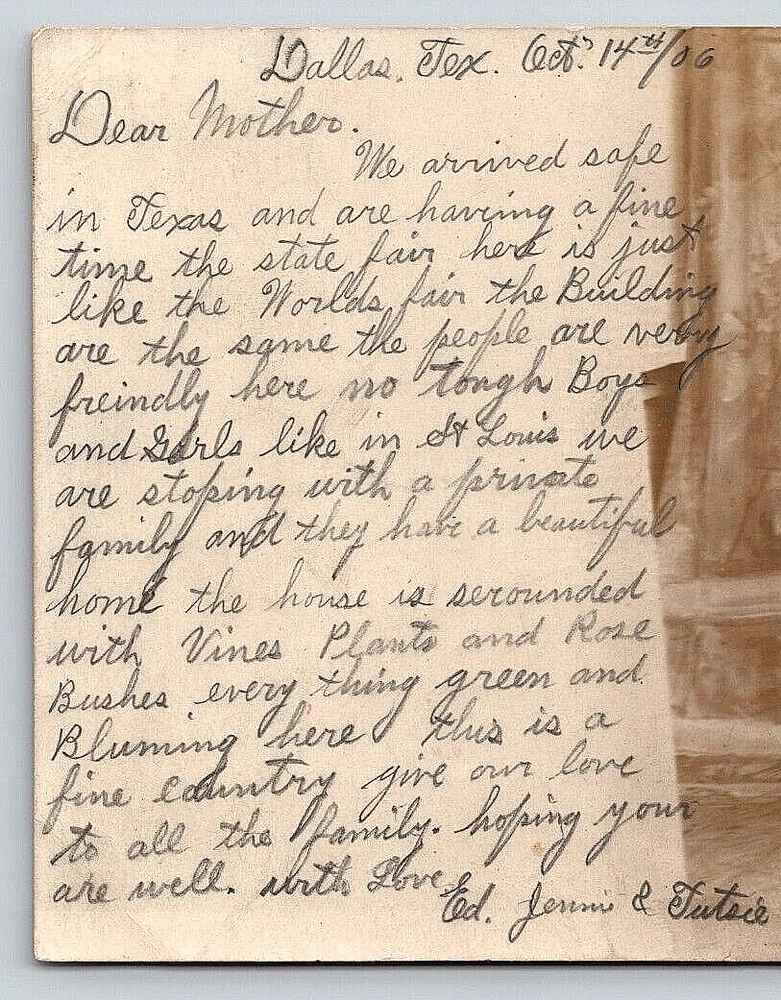 Dallas, Tex. Oct. 14th/06
Dear Mother.
We arrived safe
in Texas and are having a fine
time the state fair here is just
like the Worlds fair the Building
are the same the people are very
freindly here no tough Boys
and Girls like in St Louis we
are stoping with a private
family and they have a beautiful
home the house is serounded
with Vines Plants and Rose
Bushes every thing green and
Bluming here this is a
fine country give our love
to all the family. hoping your
are well. with Love
Ed. Jennie & Tutsie